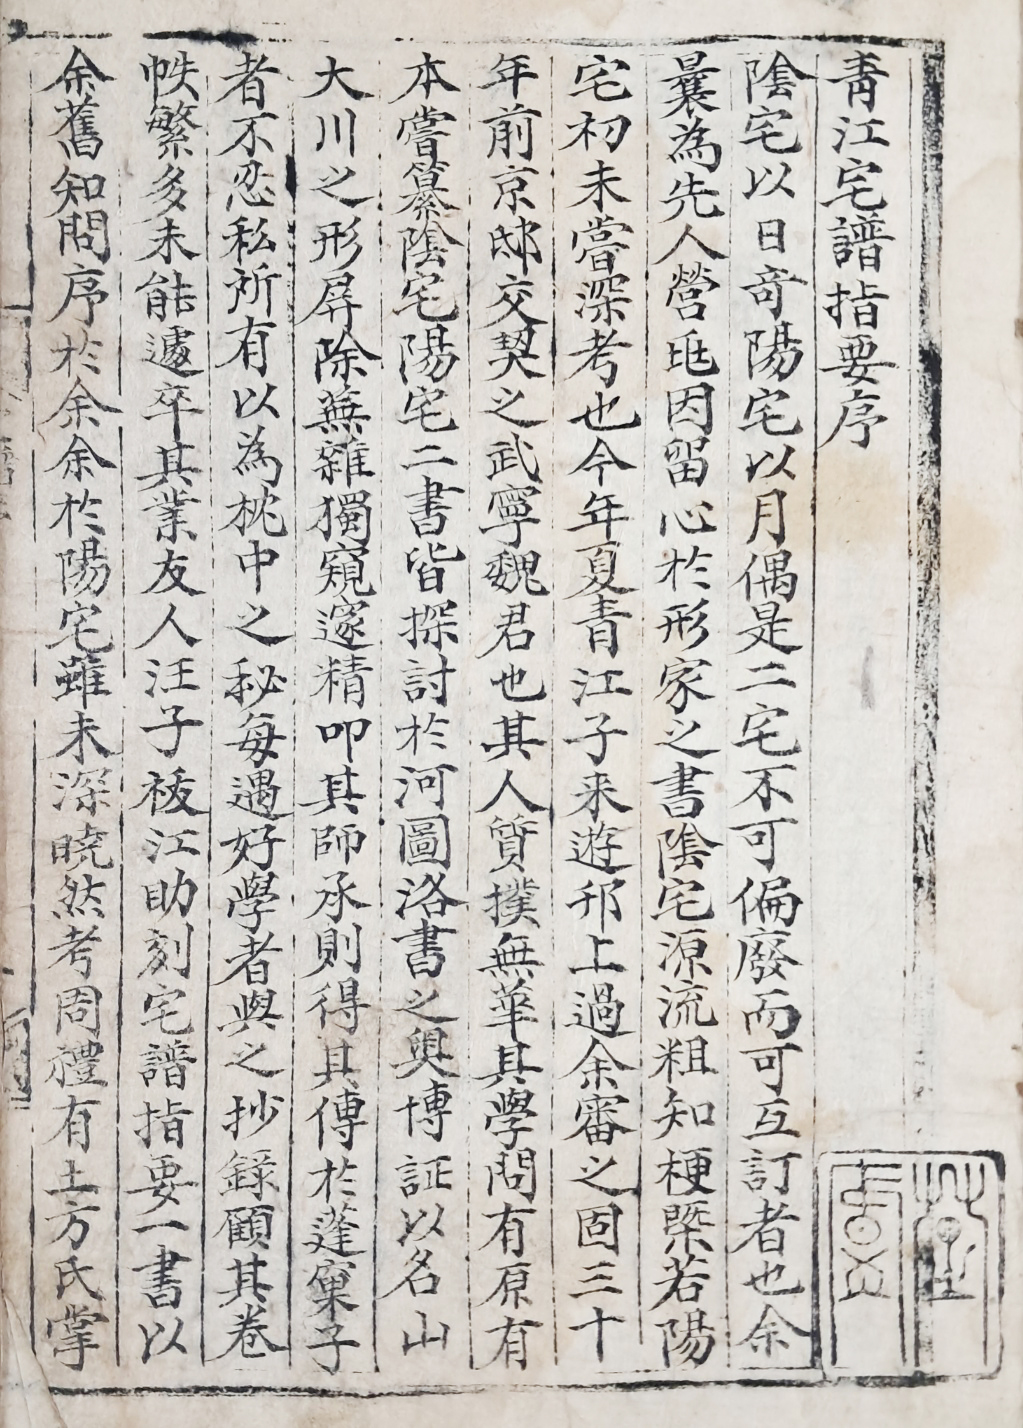 青江宅譜指要序
陰宅以日奇陽宅以月偶是二宅不可偏廢而可互訂者也余
曩為先人營兆因留心於形家之書陰宅源流粗知梗槩若陽
宅初未嘗深考也今年夏青江子来遊邗上過余審之固三十
年前京邸交契之武寧魏君也其人質撲無華其學問有原有
本嘗纂陰宅陽宅二書皆探討於河圖洛書之奧博証以名山
大川之形屏除蕪雜獨窺邃精叩其師承則得其傳於蓬窠子
者不忍私所有以為枕中之秘每遇好學者與之抄録顧其卷
帙繁多未能遽卒其業友人汪子袚江助刻宅譜指要一書以
余舊知問序於余余於陽宅雖未深曉然考周禮有土方氏掌